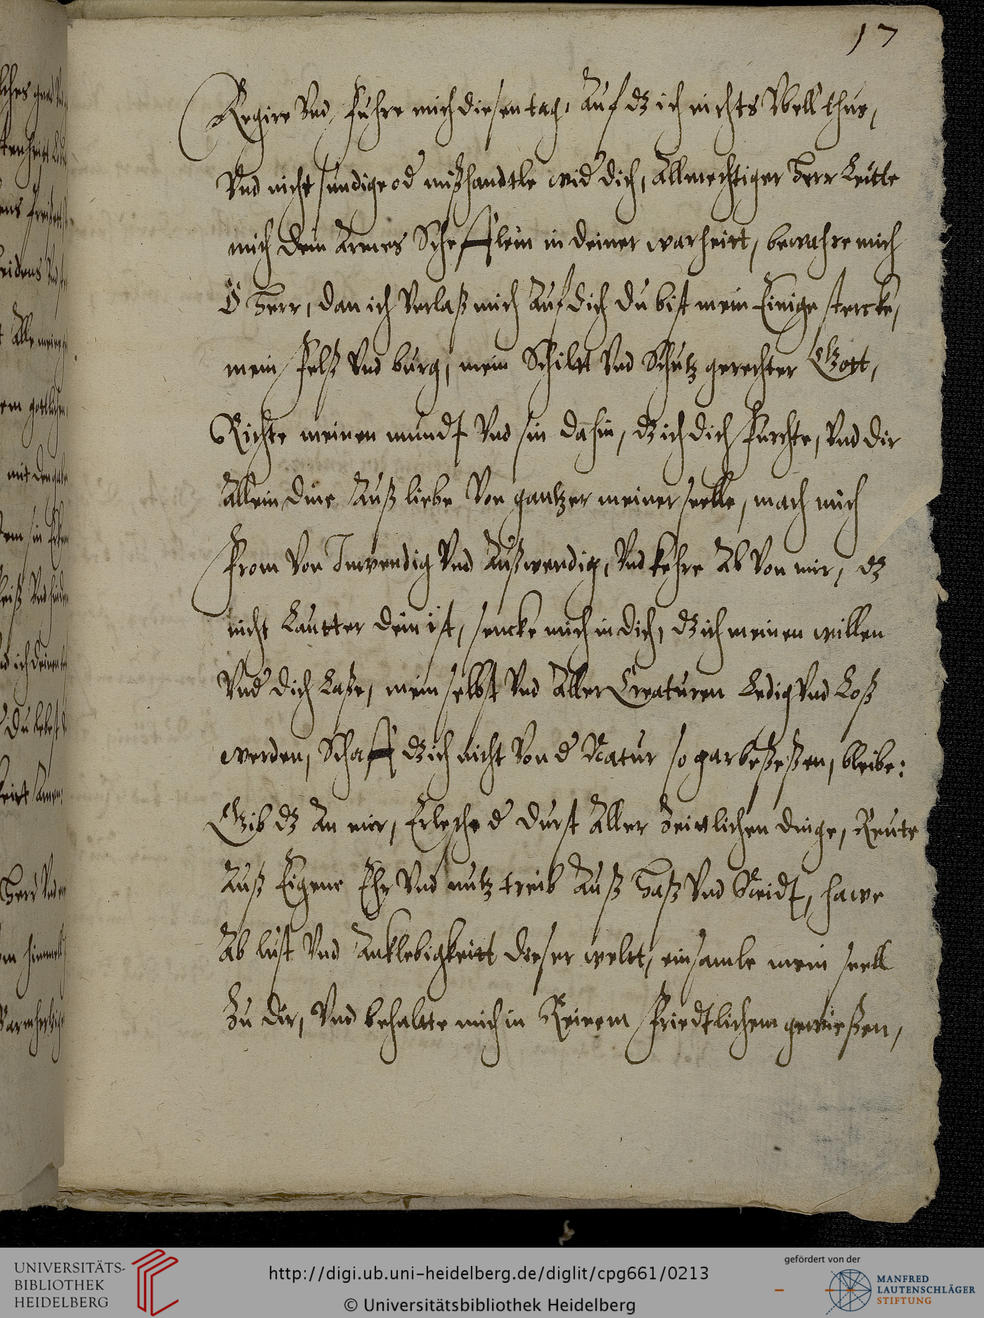 17
Regire Vnd fuhre mich diesen tag, Auf dz ich nichts Vbell thue,
Vnd nicht sundige od mißhandtle wid dich, Allmechtiger Herr Leitte
mich dein Armes Schefflein in deiner warheitt, bewahre mich
O Herr, dan ich Verlaß mich Auf dich du bist mein Einige stercke,
mein felß Vnd burg, mein Schiltt Vnd Schutz gerechter Gott,
Richte meinen mundt Vnd sin dahin, dz ich dich fürchte, Vnd dir
Allein dine Auß liebe Von gantzer meiner seelle, mach mich
from Von Inwendig Vnd Außwendig, Vnd kehre Ab Von mir, dz
nicht Lautter dein ist, sencke mich in dich, dz ich meinen willen
Vnd dich Laße, mein selbst Vnd Aller Creaturen Ledig Vnd Loß
werden, Schaff dz ich nicht Von d Natur so gar beseßen, bleibe:
Gib dz An mir, Erlesche d durst Aller Zeittlichen dinge, Reute
Auß Eigene Ehr Vnd nutz treib Auß Haß Vnd Neidt, hawe
Ab lust Vnd Anklebigkeitt dieser weltt, einsamle mein seell
Zu dir, Vnd behaltte mich in Reinem friedtlichem gewießen,
UNIVERSITÄTS-
BIBLIOTHEK
HEIDELBERG
http://digi.ub.uni-heidelberg.de/diglit/cpg661/0213
© Universitätsbibliothek Heidelberg
gefördert von der
MANFRED
LAUTENSCHLÄGER
STIFTUNG